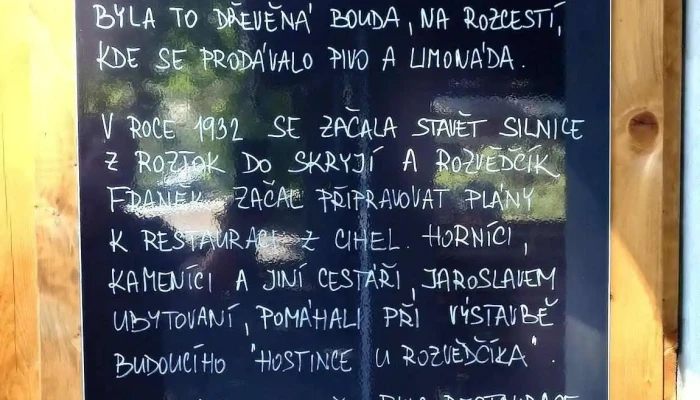 BYLA TO DŘEVĚNÁ BOUDA, NA ROZCESTÍ,
KDE SE PRODÁVALO PIVO A LIMONÁDA.
V ROCE 1932 SE ZAČALA STAVĚT SILNICE
Z ROZTOK DO SKRYJÍ A ROZVĚDČÍK
FRANĚK ZAČAL PŘIPRAVOVAT PLÁNY
K RESTAURACI Z CIHEL. HORNÍCI,
KAMENÍCI A JINÍ CESTÁŘI, JAROSLAVEM
UBYTOVANÍ, POMÁHALI PŘI VÝSTAVBĚ
BUDOUCÍHO "HOSTINCE U ROZVĚDČÍKA".